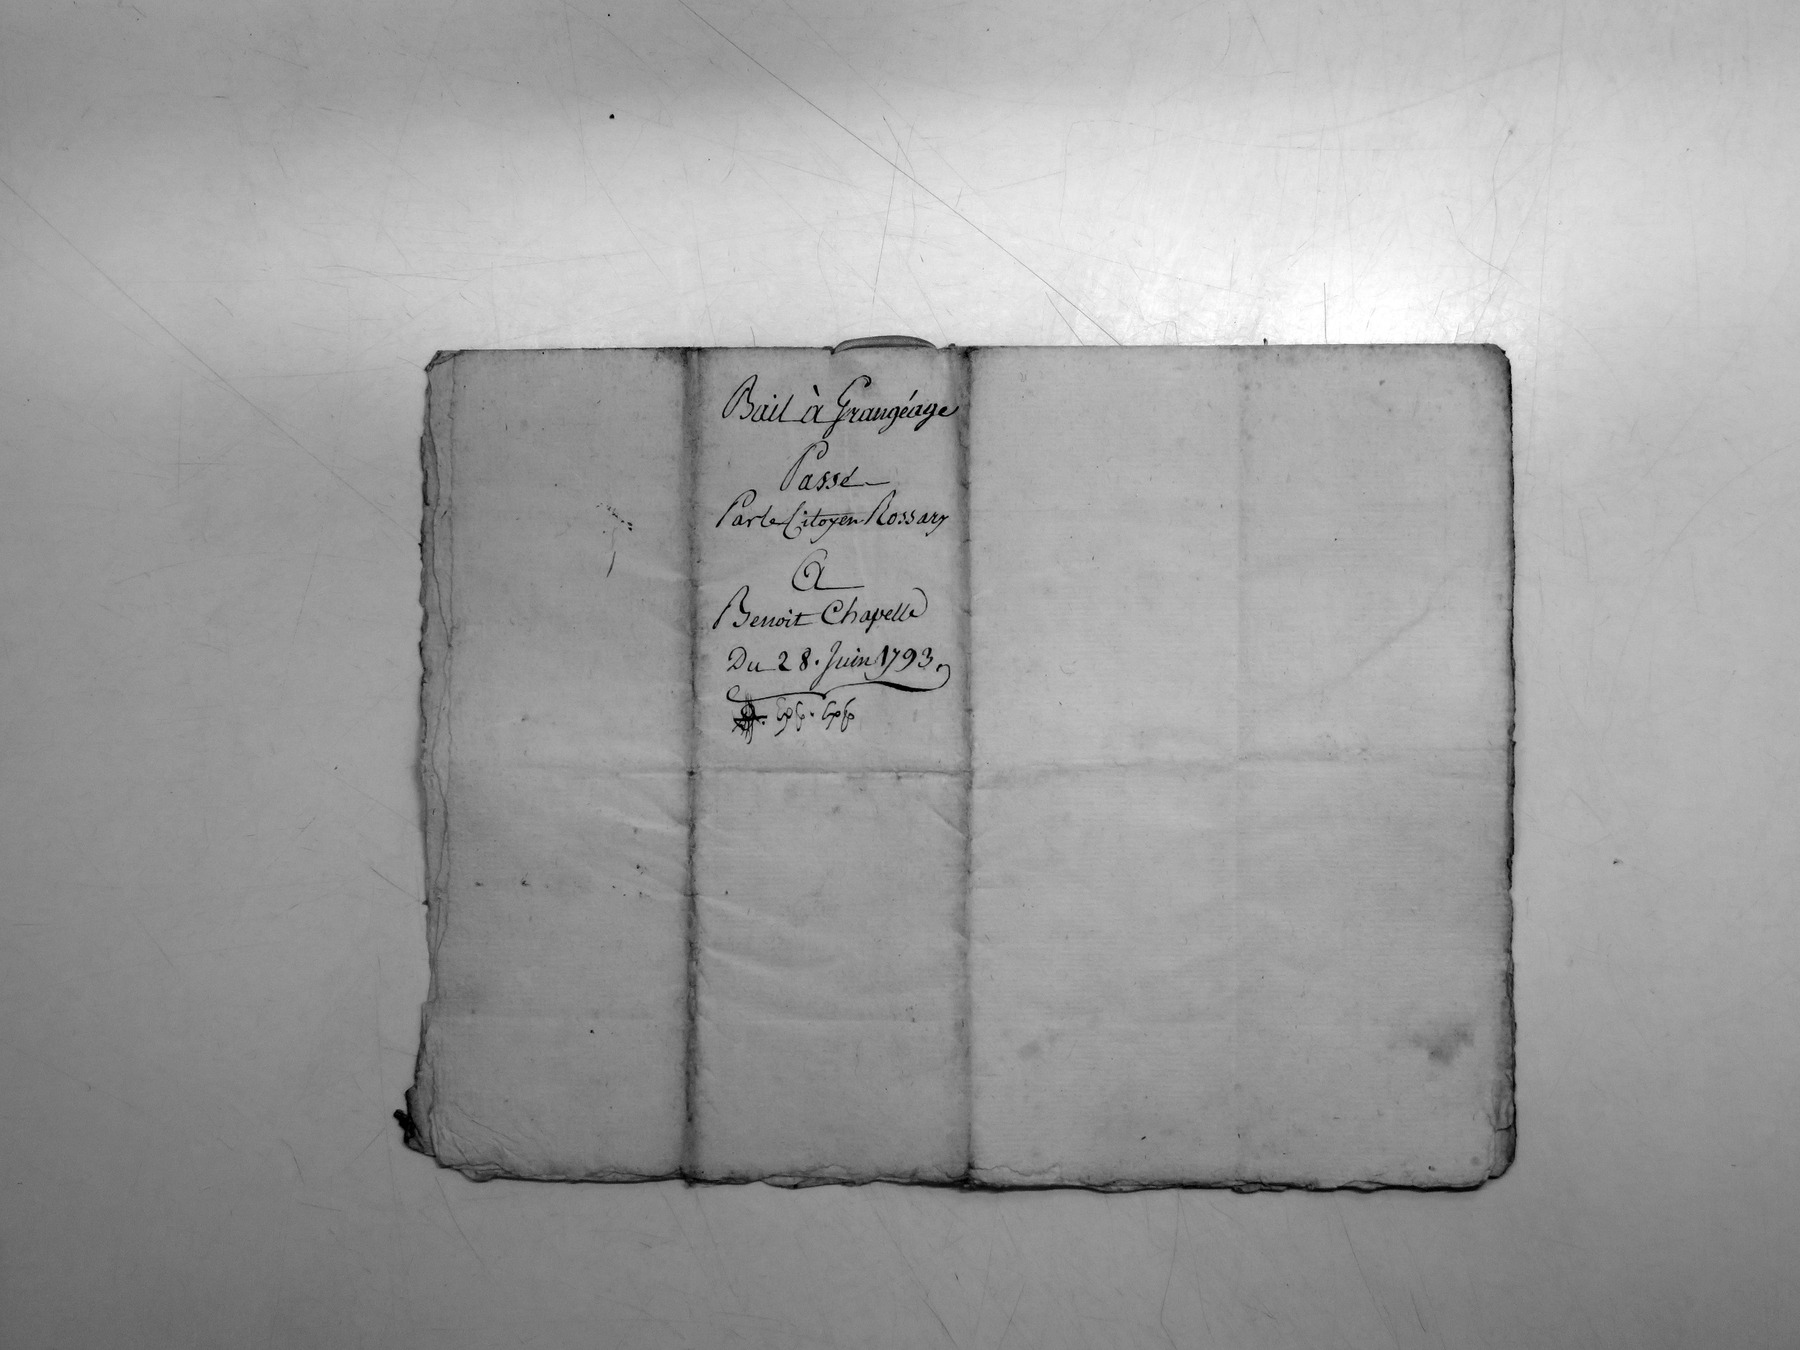 Bail à Grangéage
Passé
Par le Citoyen Rossary
A
Benoit Chapelle
Du 28. Juin 1793.